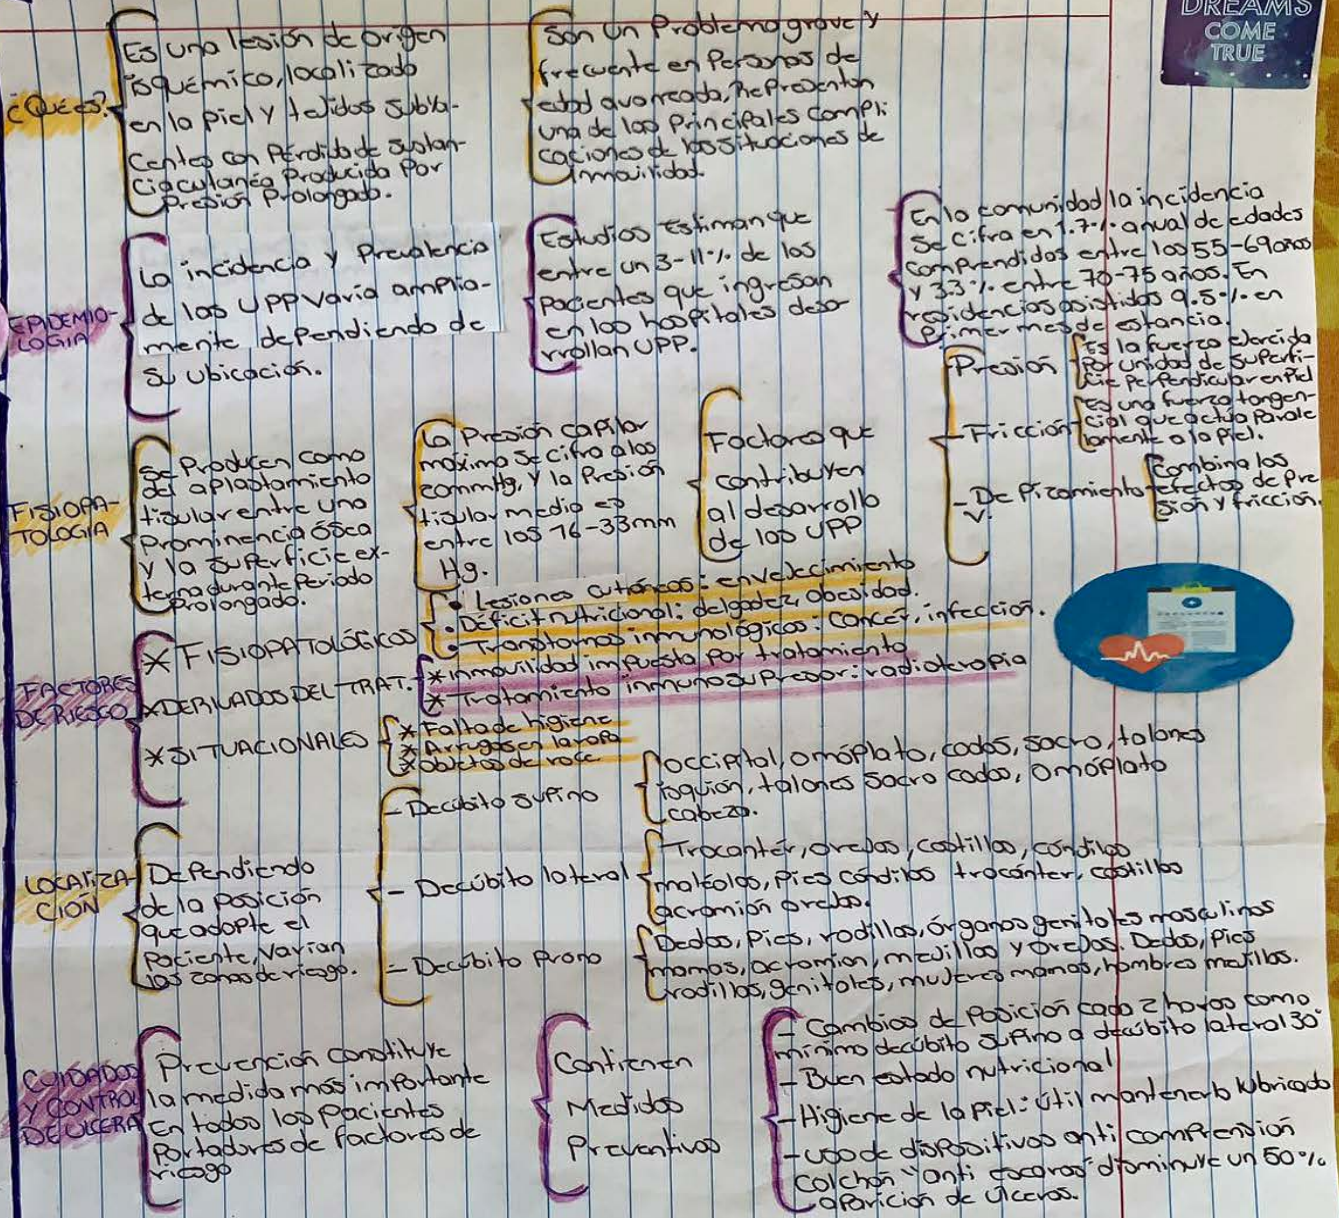 DREAMS
COME
TRUE
¿Qué es?
Es una lesión de origen
isquémico, localizado
en la piel y tejidos subya-
centes con Pérdida de sustan-
cia cutanéa Producida Por
Presión Prolongado.
Son un Problema grave y
frecuente en Personas de
edad avanzada, Representan
una de las Principales compli
caciones de las situaciones de
inmovilidad.
EPIDEMIO-
LOGIA
La incidencia y Prevalencia
de las UPP varia amplia-
mente dependiendo de
su ubicación.
Estudios Estiman que
entre un 3-11% de los
pacientes que ingresan
en los hospitales desa
rrollan UPP.
En la comunidad la incidencia
se cifra en 1.7% anual de edades
comprendidos entre los 55-69 años
y 3.3% entre 70-75 años. En
residencias asistidas 9.5% en
primer mes de estancia.
FISIOPA-
TOLOGIA
Se Producen como
del aplastamiento
tisular entre una
Prominencia ósea
y la superficie ex-
terna durante Periodo
Prolongado.
La Presión capilar
máximo se cifra a los
mmHg, y la Presión
tisular media es
entre los 16-33mm
Hg.
Factores que
contribuyen
al desarrollo
de las UPP
Presión
Es la fuerza ejercida
Por unidad de superfi-
cie perpendicular en piel
- Fricción
Es una fuerza tangen-
cial que actúa Parale
lamente a la piel.
- De Pizamiento
V.
Combina los
efectos de Pre
sión y fricción.
FACTORES
DE RIESGO
* FISIOPATOLÓGICOS
• Lesiones cutáneas: envejecimiento
• Déficit nutricional: delgadez, obesidad.
• Transtornos inmunológicos: cancer, infección.
* DERIVADOS DEL TRAT.
* inmovilidad impuesta por tratamiento
* Tratamiento inmunosupresor: radioterapia
* SITUACIONALES
* Falta de higiene
* Arrugas en la ropa
* Objetos de roce
LOCALIZA-
CIÓN
Dependiendo
de la posición
que adopte el
paciente, varian
las zonas de riesgo.
- Decúbito supino
occipital, omóplato, codos, sacro, talones
isquión, talones sacro codos, omóplato
cabeza.
- Decúbito lateral
Trocanter, orejas, costillas, cóndilos
maléolos, pies cóndilos trocánter, costillas
acromión orejas.
- Decúbito prono
Dedos, pies, rodillas, órganos genitales masculinos
mamas, acromion, mejillas y orejas. Dedos, pies
rodillas, genitales, mujeres mamas, hombres mejillas.
CUIDADOS
Y CONTROL
DE ULCERA
Prevención constituye
la medida más importante
en todos los pacientes
portadores de factores de
riesgo
Contienen
Medidas
Preventivas
- Cambios de Posición cada 2 horas como
mínimo decúbito supino a decúbito lateral 30°
- Buen estado nutricional
- Higiene de la piel: útil mantenerlo lubricado
- uso de dispositivos anti comprensión
colchón "anti escaras" disminuye un 50%
aparición de úlceras.